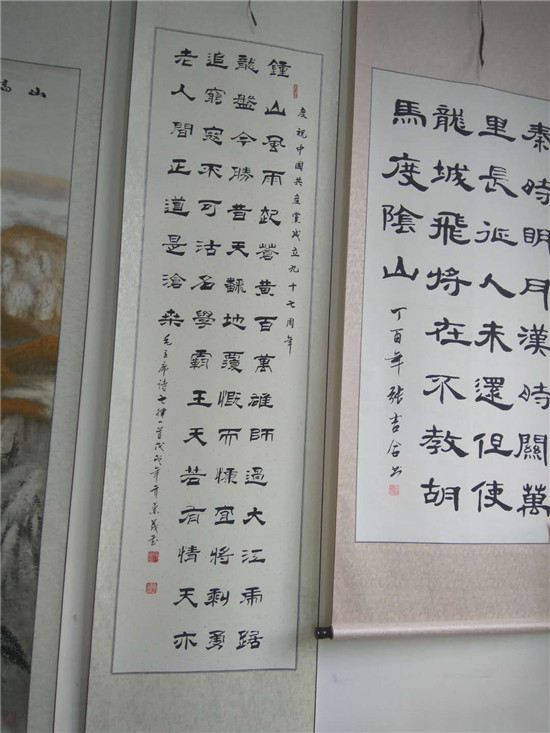 秦時明月漢時關萬
里長征人未還但使
龍城飛將在不教胡
馬度陰山
丁酉年張吉合书
慶祝中国共產黨成立九十七周年
鍾山風雨起蒼黄百萬雄師過大江虎踞
龍盤今勝昔天翻地覆慨而慷宜將剩勇
追窮寇不可沽名學霸王天若有情天亦
老人間正道是滄桑
毛主席詩七律一首戊戌年景茂書
山高